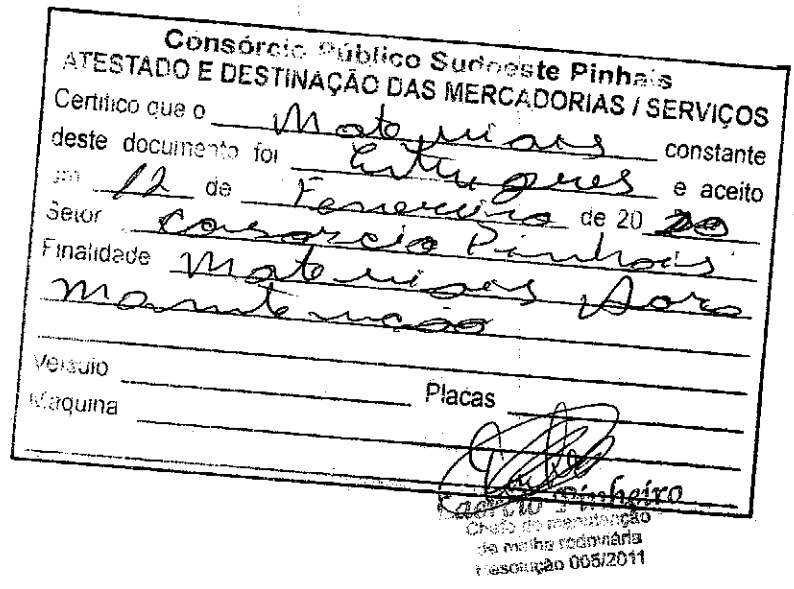 Consórcio Público Sudoeste Pinhais
ATESTADO E DESTINAÇÃO DAS MERCADORIAS / SERVIÇOS
Certifico que o Materiais constante
deste documento foi Entregues e aceito
em 12 de Fevereiro de 20 20
Setor Consorcio Pinhais
Finalidade Materiais para
manutenção
Veículo Placas
Maquina
Laercio Pinheiro
Chefe de manutenção
da malha rodoviária
Resolução 005/2011